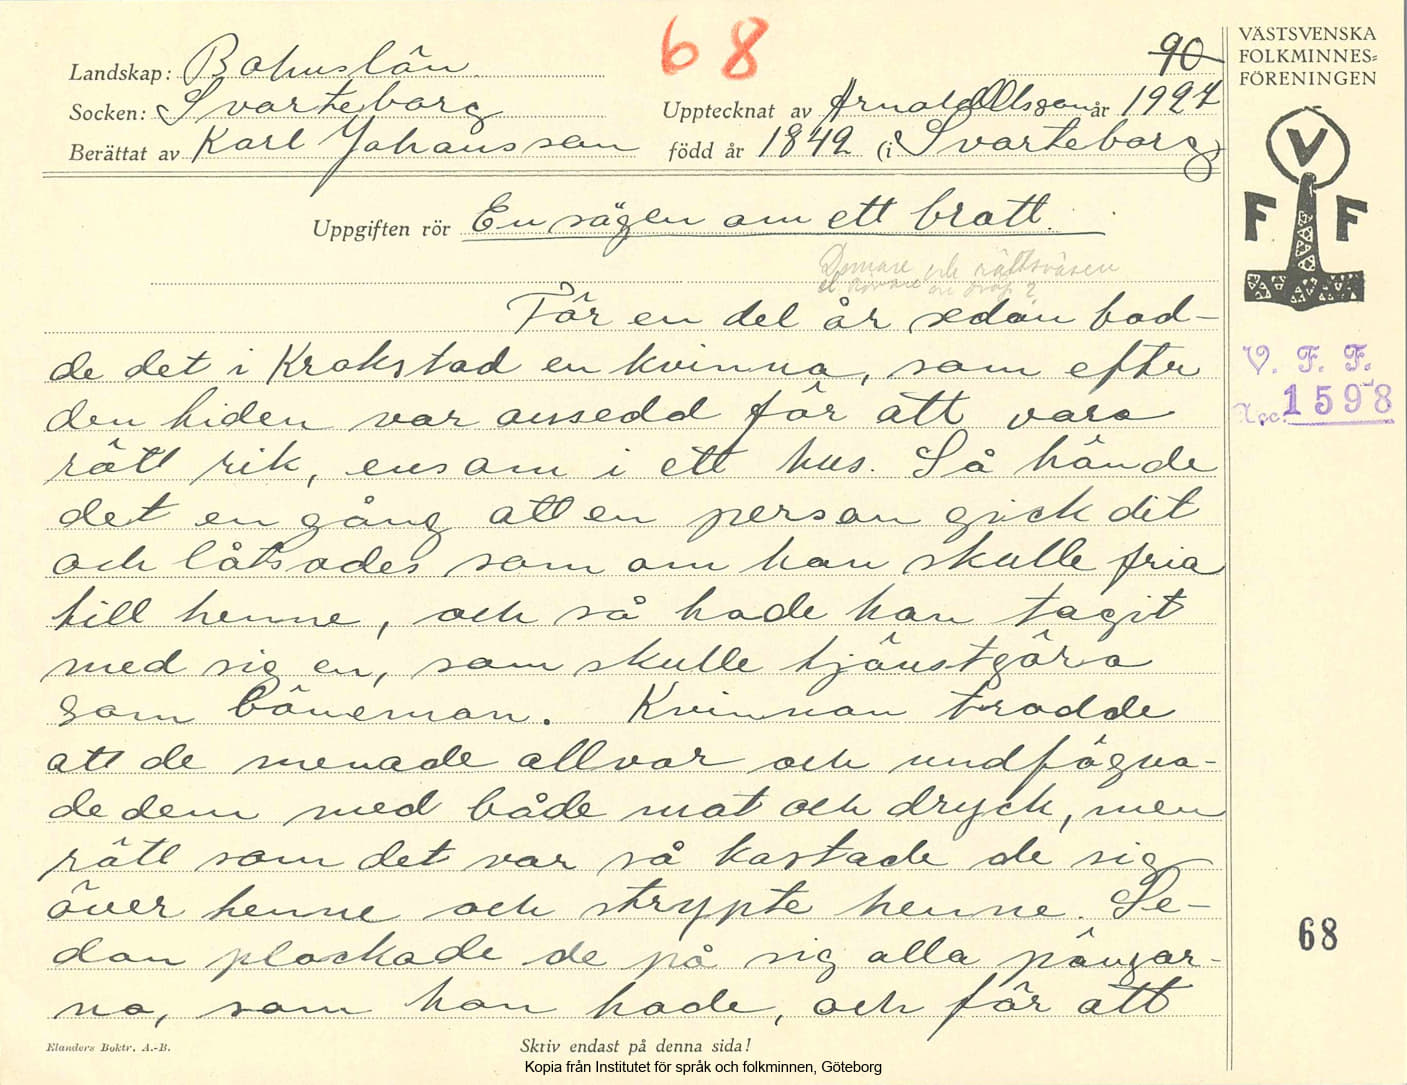 68
90
VÄSTSVENSKA
FOLKMINNES=
FÖRENINGEN
Landskap: Bohuslän
Socken: Svarteborg Upptecknat av Arnold Olsson år 1927
Berättat av Karl Johansson född år 1842 (i Svarteborg)
V
F F
Uppgiften rör En sägen om ett brott.
Domare och rättsväsen
För en del år sedan bod-
de det i Krokstad en kvinna, som efter
den tiden var ansedd för att vara
rätt rik, ensam i ett hus. Så hände
det en gång att en person gick dit
och låtsades som om han skulle fria
till henne, och så hade han tagit
med sig en, som skulle tjänstgöra
som böneman. Kvinnan trodde
att de menade allvar och undfägna-
de dem med både mat och dryck, men
rätt som det var så kastade de sig
över henne och strypte henne. Se-
dan plockade de på sig alla pängar-
na, som hon hade, och för att
V. F. F.
Acc. 1598
68
Elanders Boktr. A.-B.
Skriv endast på denna sida!
Kopia från Institutet för språk och folkminnen, Göteborg